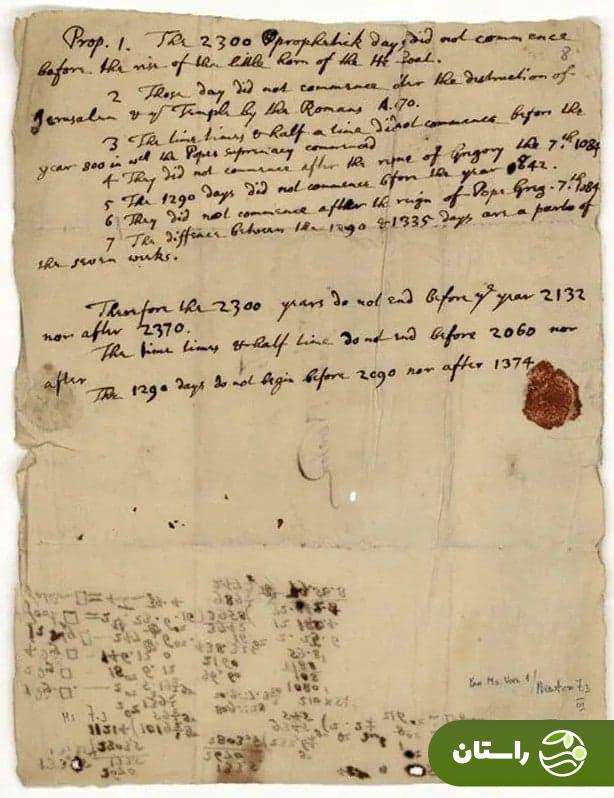 Prop. 1. The 2300 prophetick days did not commence
before the rise of the little horn of the He Goat.
8
2 Those day did not commence after the destruction of
Jerusalem & ye Temple by the Romans A. 70.
3 The time times & half a time did not commence before the
year 800 in wch the Popes supremacy commenced
4 They did not commence after the reigne of Gregory the 7th. 1084
5 The 1290 days did not commence before the year 842.
6 They did not commence after the reign of Pope Greg. 7th. 1084
7 The diffence between the 1290 & 1335 days are a parts of
the seven weeks.
Therefore the 2300 years do not end before ye year 2132
nor after 2370.
The time times & half time do not end before 2060 nor
after
The 1290 days do not begin before 2090 nor after 1374
Yah Ms. Var. 1/
Newton 7.3
Ms 7.3
راستان